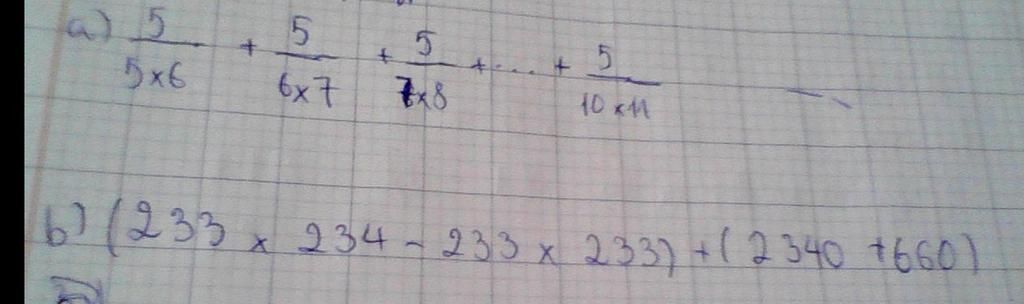 a) 5/5×6 + 5/6×7 + 5/7×8 + .... + 5/10×11
b) (233 × 234 - 233 × 233) + (2340 + 660)